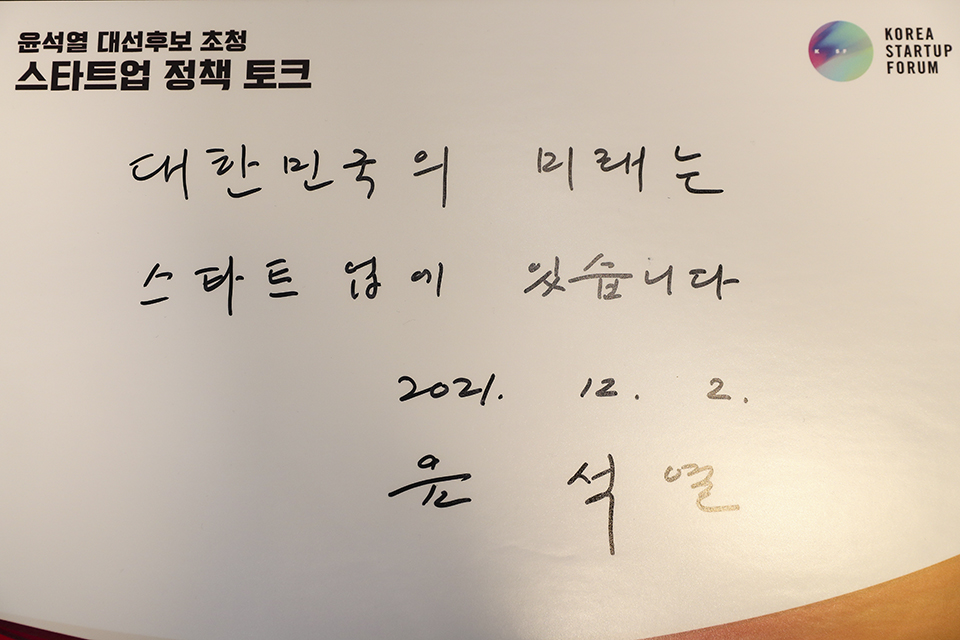 윤석열 대선후보 초청
스타트업 정책 토크
KOREA
STARTUP
FORUM
대한민국의 미래는
스타트업에 있습니다
2021. 12. 2.
윤석열